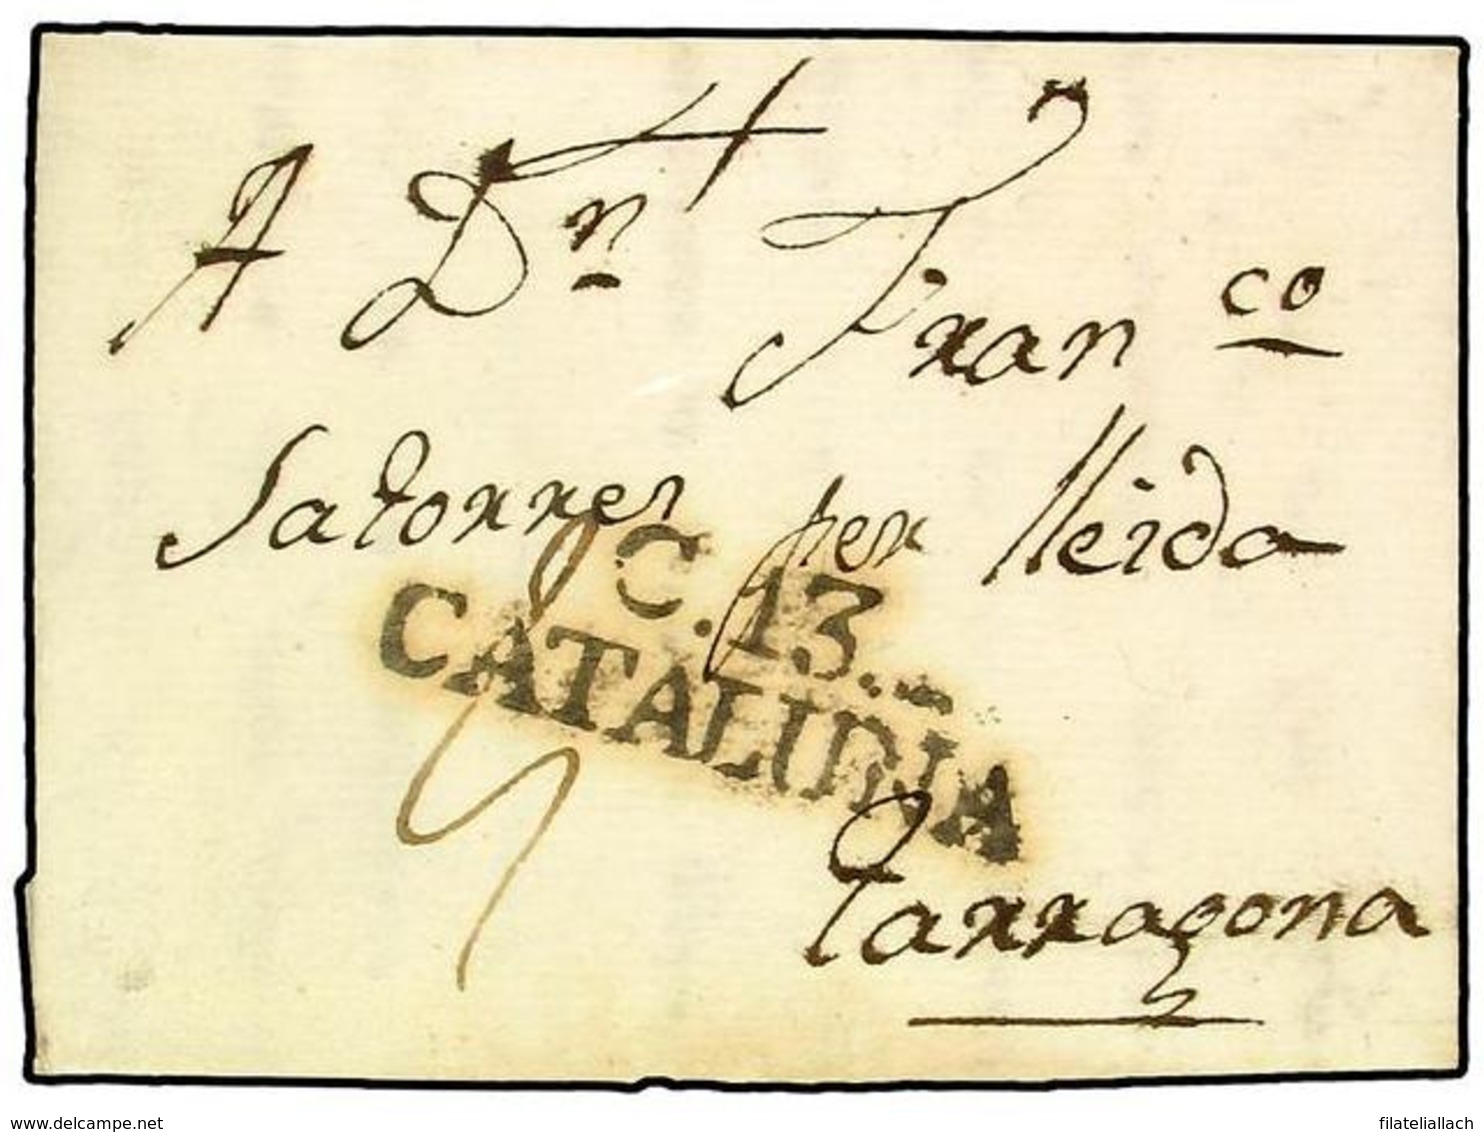 A Dn Franco
Satorres per lleida
C.13.
CATALUÑA
Tarragona
www.delcampe.net
filateliallach